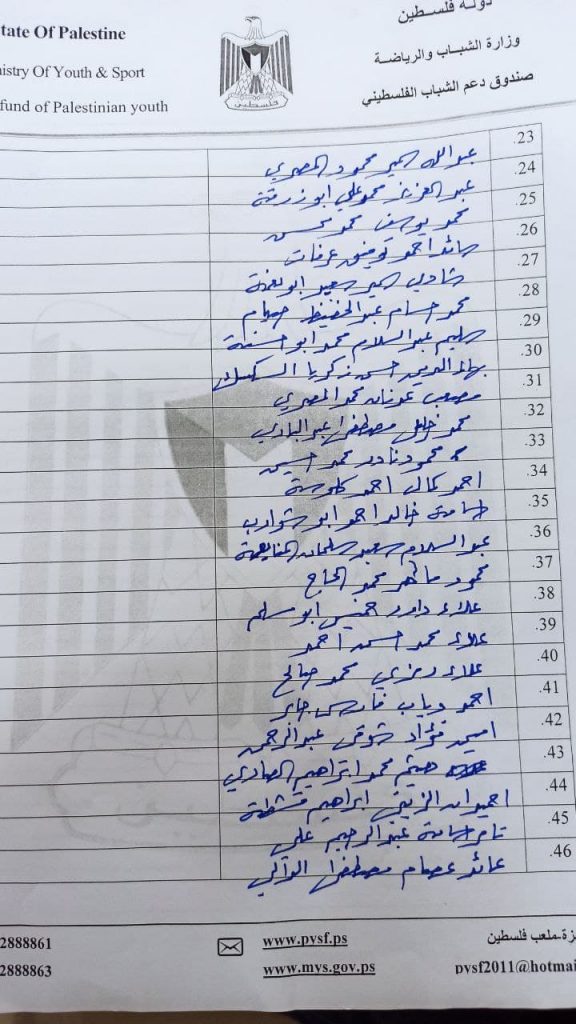 tate Of Palestine
nistry Of Youth & Sport
fund of Palestinian youth
دولة فلسطين
وزارة الشباب والرياضة
صندوق دعم الشباب الفلسطيني
فلسطين
.23 عبد الله سمير محمود المصري
.24 عبد العزيز محمد علي ابو زرقة
.25 محمد يوسف محمد محسن
.26 صائد احمد توفيق عرفات
.27 شادي سمير سعيد ابو
.28 محمد حسام عبد الحفيظ صيام
.29 سليم عبد السلام محمد ابو حسنة
.30 بهاء الدين حسن زكريا السكسك
.31 مصعب عدنان محمد المصري
.32 محمد خليل مصطفى عبد الهادي
.33 محمود نادر محمد حسين
.34 احمد كمال احمد
.35 اسامة خالد احمد ابو شوارب
.36 عبد السلام سعيد سلمان
.37 محمود ماهر محمد الحاج
.38 علاء داود خميس ابو سالم
.39 علاء محمد حسن احمد
.40 علاء رمزي محمد صالح
.41 احمد دياب فارس جابر
.42 امين فؤاد شوقي عبد الرحمن
.43 هيثم محمد ابراهيم الصادي
.44 احمد ابراهيم قشطة
.45 تامر اسامة عبد الرحيم علي
.46 عائد عصام مصطفى الوالي
2888861
www.pysf.ps
زة-ملعب فلسطين
2888863
www.mys.gov.ps
pysf2011@hotmai